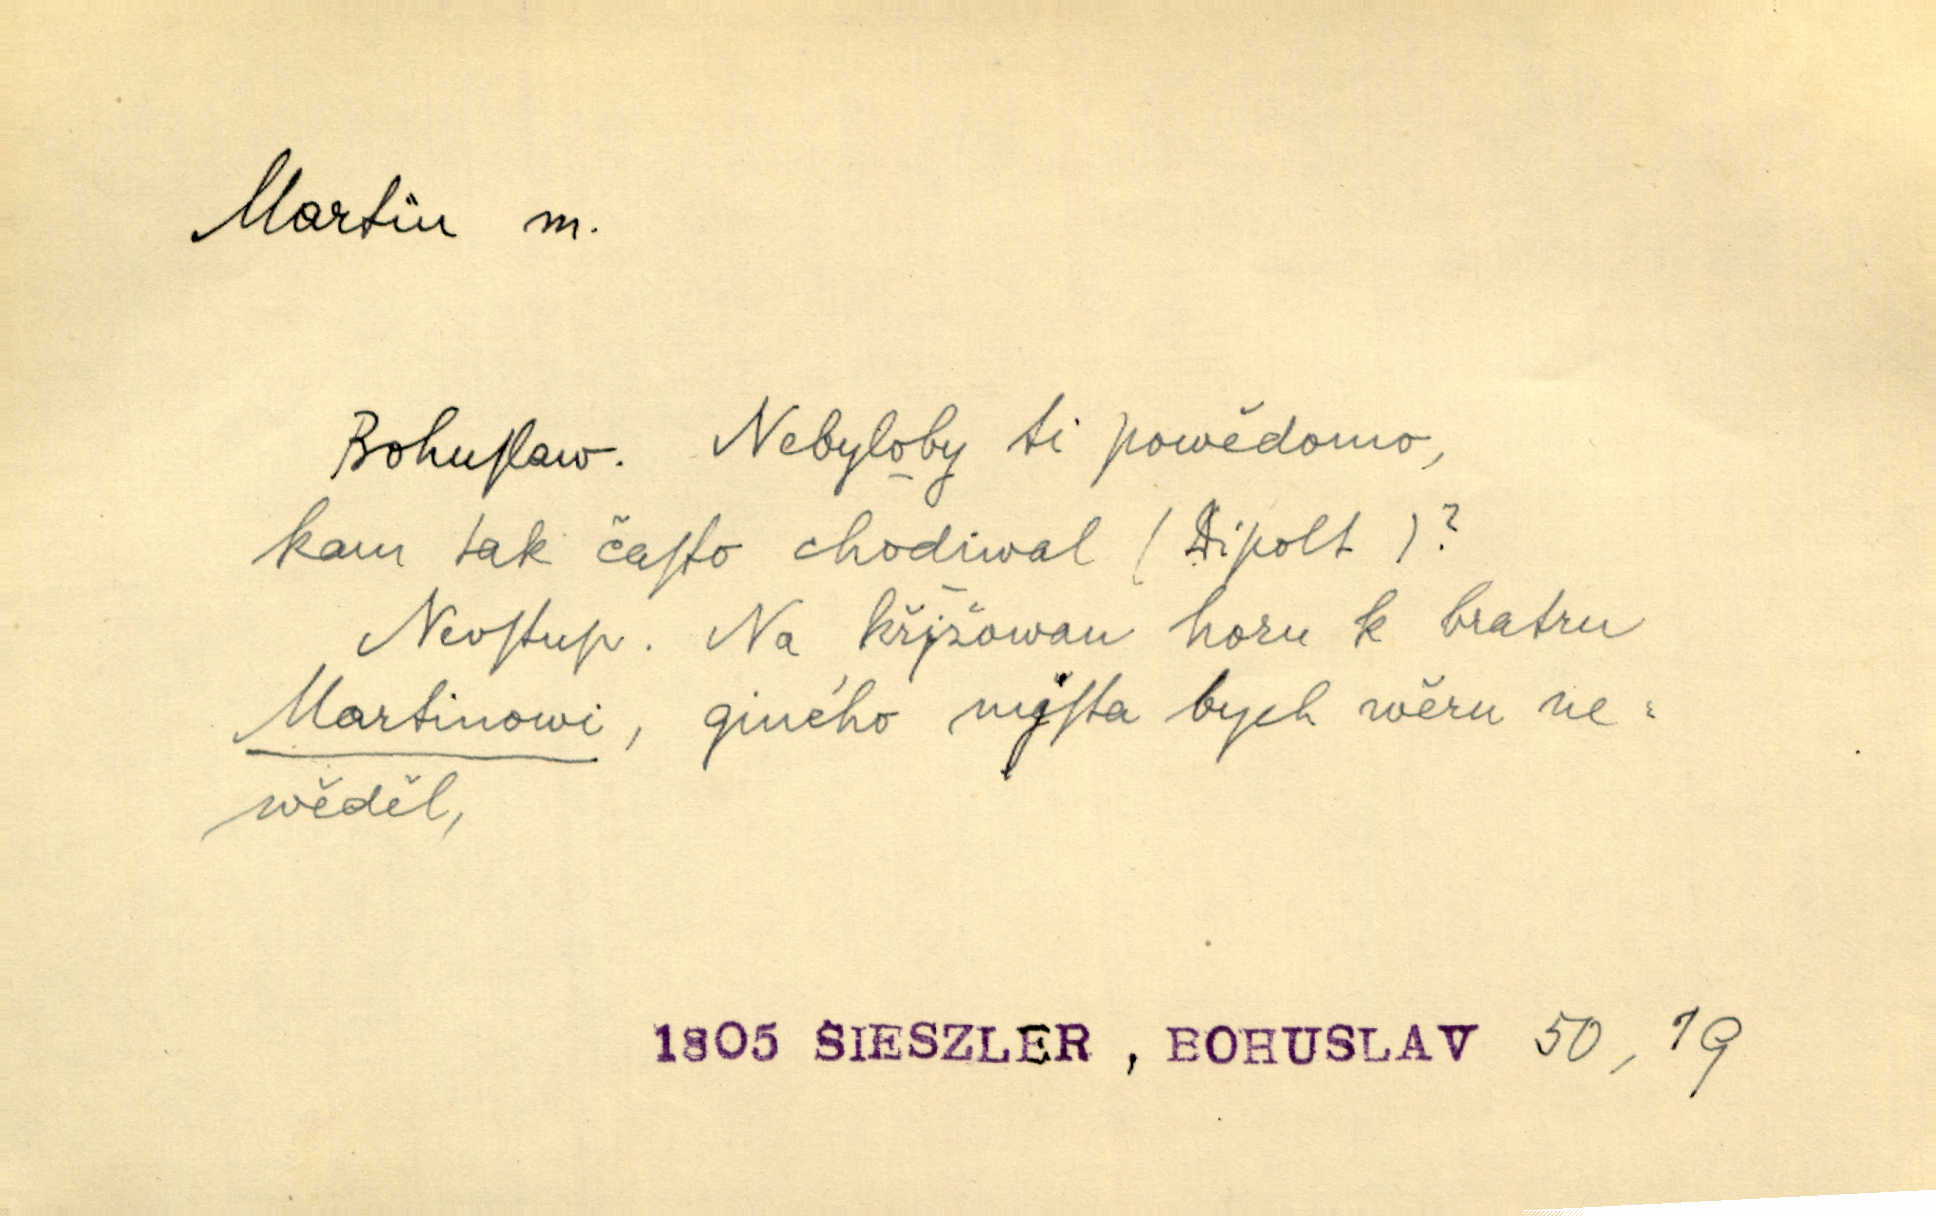 Martin m.
Bohuſlaw. Nebyloby ti powědomo,
kam tak čaſto chodiwal (Dipolt)?
Neoſtup. Na křjžowau horu k bratru
Martinowi, giného mjſta bych wěru ne=
wěděl,
1805 SIESZLER, BOHUSLAV 50, 19